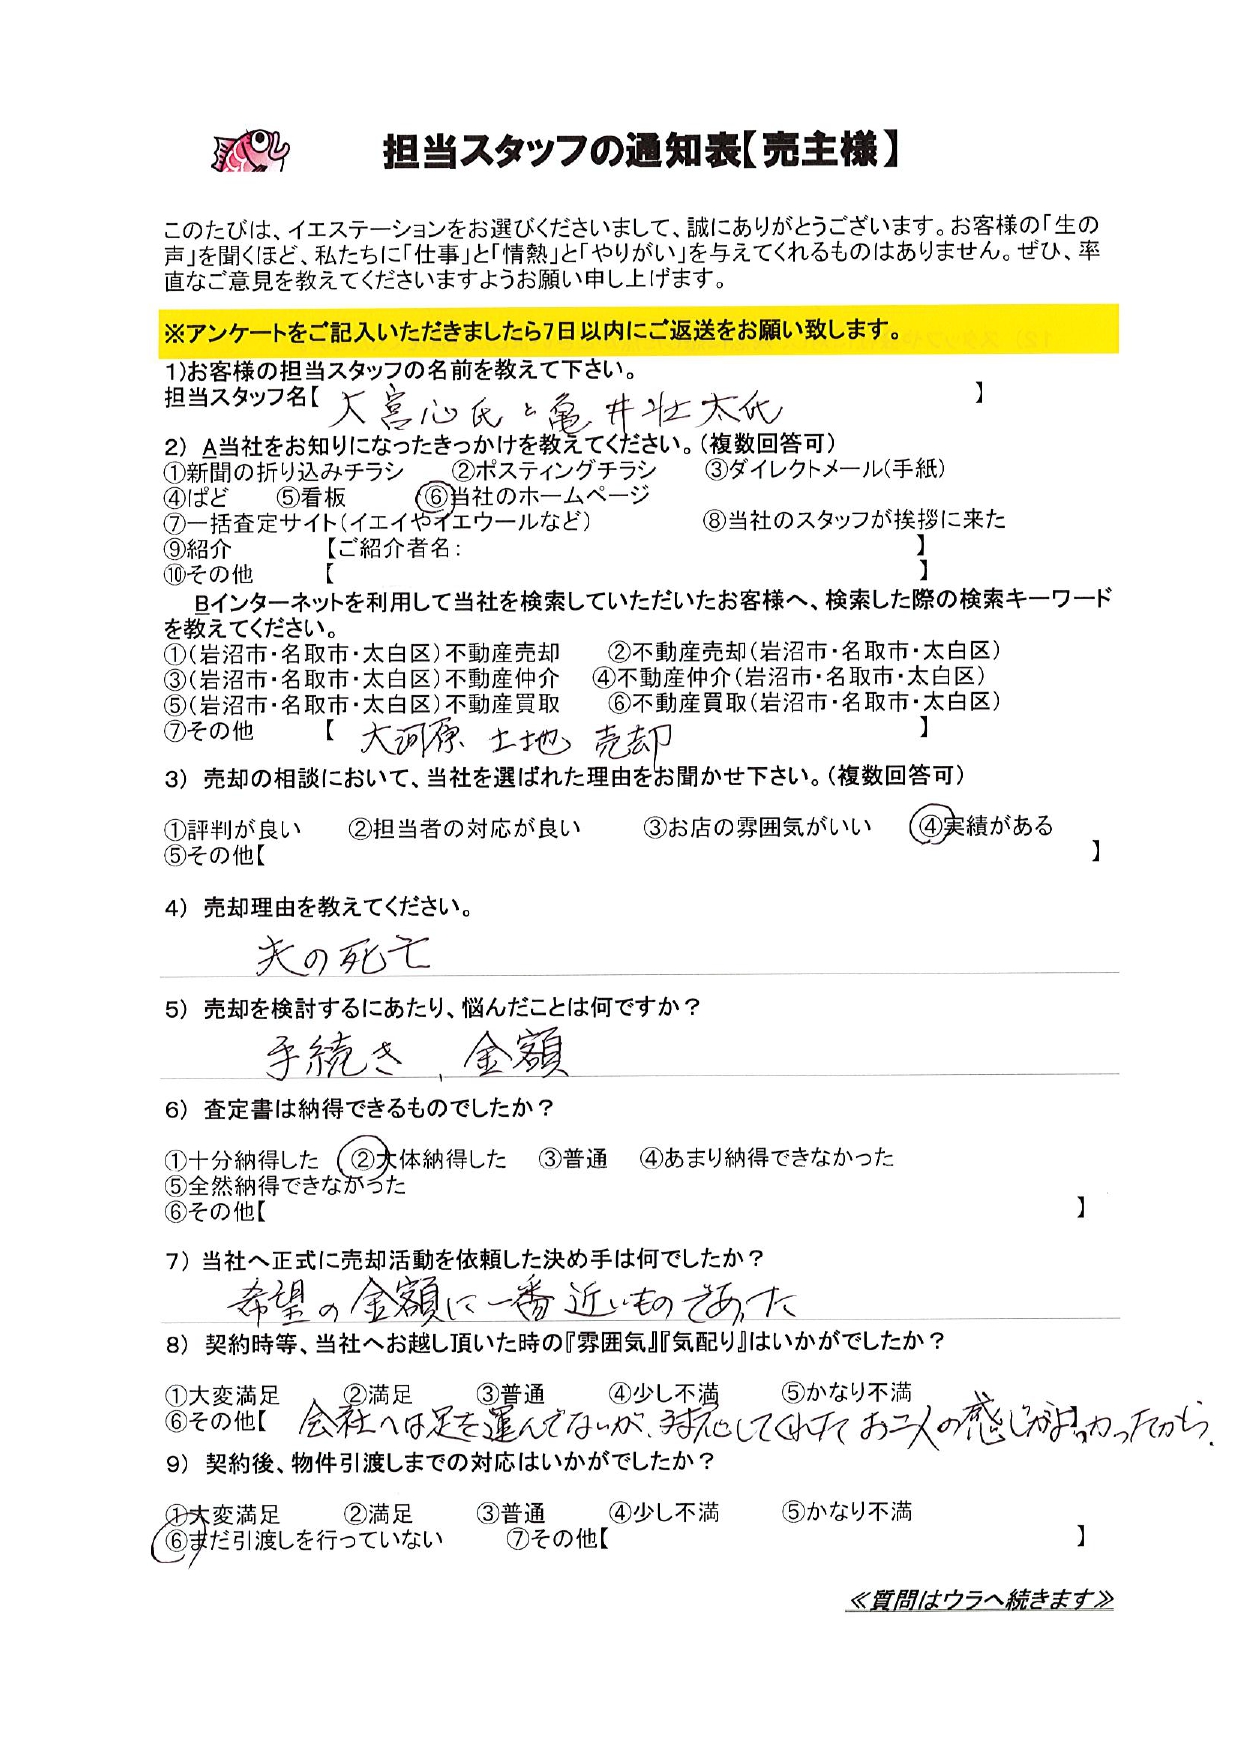 担当スタッフの通知表【売主様】
このたびは、イエステーションをお選びくださいまして、誠にありがとうございます。お客様の「生の
声」を聞くほど、私たちに「仕事」と「情熱」と「やりがい」を与えてくれるものはありません。ぜひ、率
直なご意見を教えてくださいますようお願い申し上げます。
※アンケートをご記入いただきましたら7日以内にご返送をお願い致します。
1)お客様の担当スタッフの名前を教えて下さい。
担当スタッフ名【 大宮心氏と亀井壮太氏 】
2) A当社をお知りになったきっかけを教えてください。(複数回答可)
①新聞の折り込みチラシ ②ポスティングチラシ ③ダイレクトメール(手紙)
④ぱど ⑤看板 ⑥当社のホームページ
⑦一括査定サイト(イエイやイエウールなど) ⑧当社のスタッフが挨拶に来た
⑨紹介 【ご紹介者名: 】
⑩その他 【 】
Bインターネットを利用して当社を検索していただいたお客様へ、検索した際の検索キーワード
を教えてください。
①(岩沼市・名取市・太白区)不動産売却 ②不動産売却(岩沼市・名取市・太白区)
③(岩沼市・名取市・太白区)不動産仲介 ④不動産仲介(岩沼市・名取市・太白区)
⑤(岩沼市・名取市・太白区)不動産買取 ⑥不動産買取(岩沼市・名取市・太白区)
⑦その他 【 大河原 土地 売却 】
3) 売却の相談において、当社を選ばれた理由をお聞かせ下さい。(複数回答可)
①評判が良い ②担当者の対応が良い ③お店の雰囲気がいい ④実績がある
⑤その他【 】
4) 売却理由を教えてください。
夫の死亡
5) 売却を検討するにあたり、悩んだことは何ですか?
手続き、金額
6) 査定書は納得できるものでしたか?
①十分納得した ②大体納得した ③普通 ④あまり納得できなかった
⑤全然納得できなかった
⑥その他【 】
7) 当社へ正式に売却活動を依頼した決め手は何でしたか?
希望の金額に一番近いものであった
8) 契約時等、当社へお越し頂いた時の『雰囲気』『気配り』はいかがでしたか?
①大変満足 ②満足 ③普通 ④少し不満 ⑤かなり不満
⑥その他【 会社へは足を運んでないが、対応してくれたお二人の感じがよかったから。】
9) 契約後、物件引渡しまでの対応はいかがでしたか?
①大変満足 ②満足 ③普通 ④少し不満 ⑤かなり不満
⑥まだ引渡しを行っていない ⑦その他【 】
≪質問はウラへ続きます≫